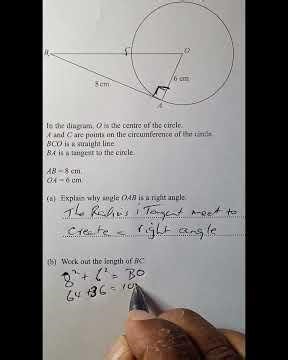 B
O
8 cm
6 cm
A
In the diagram, O is the centre of the circle.
A and C are points on the circumference of the circle.
BCO is a straight line
BA is a tangent to the circle.
AB = 8 cm.
OA = 6 cm.
(a) Explain why angle OAB is a right angle.
The Radius & Tangent meet to
create a right angle
(b) Work out the length of BC.
8² + 6² = BO
64 + 36 = 10